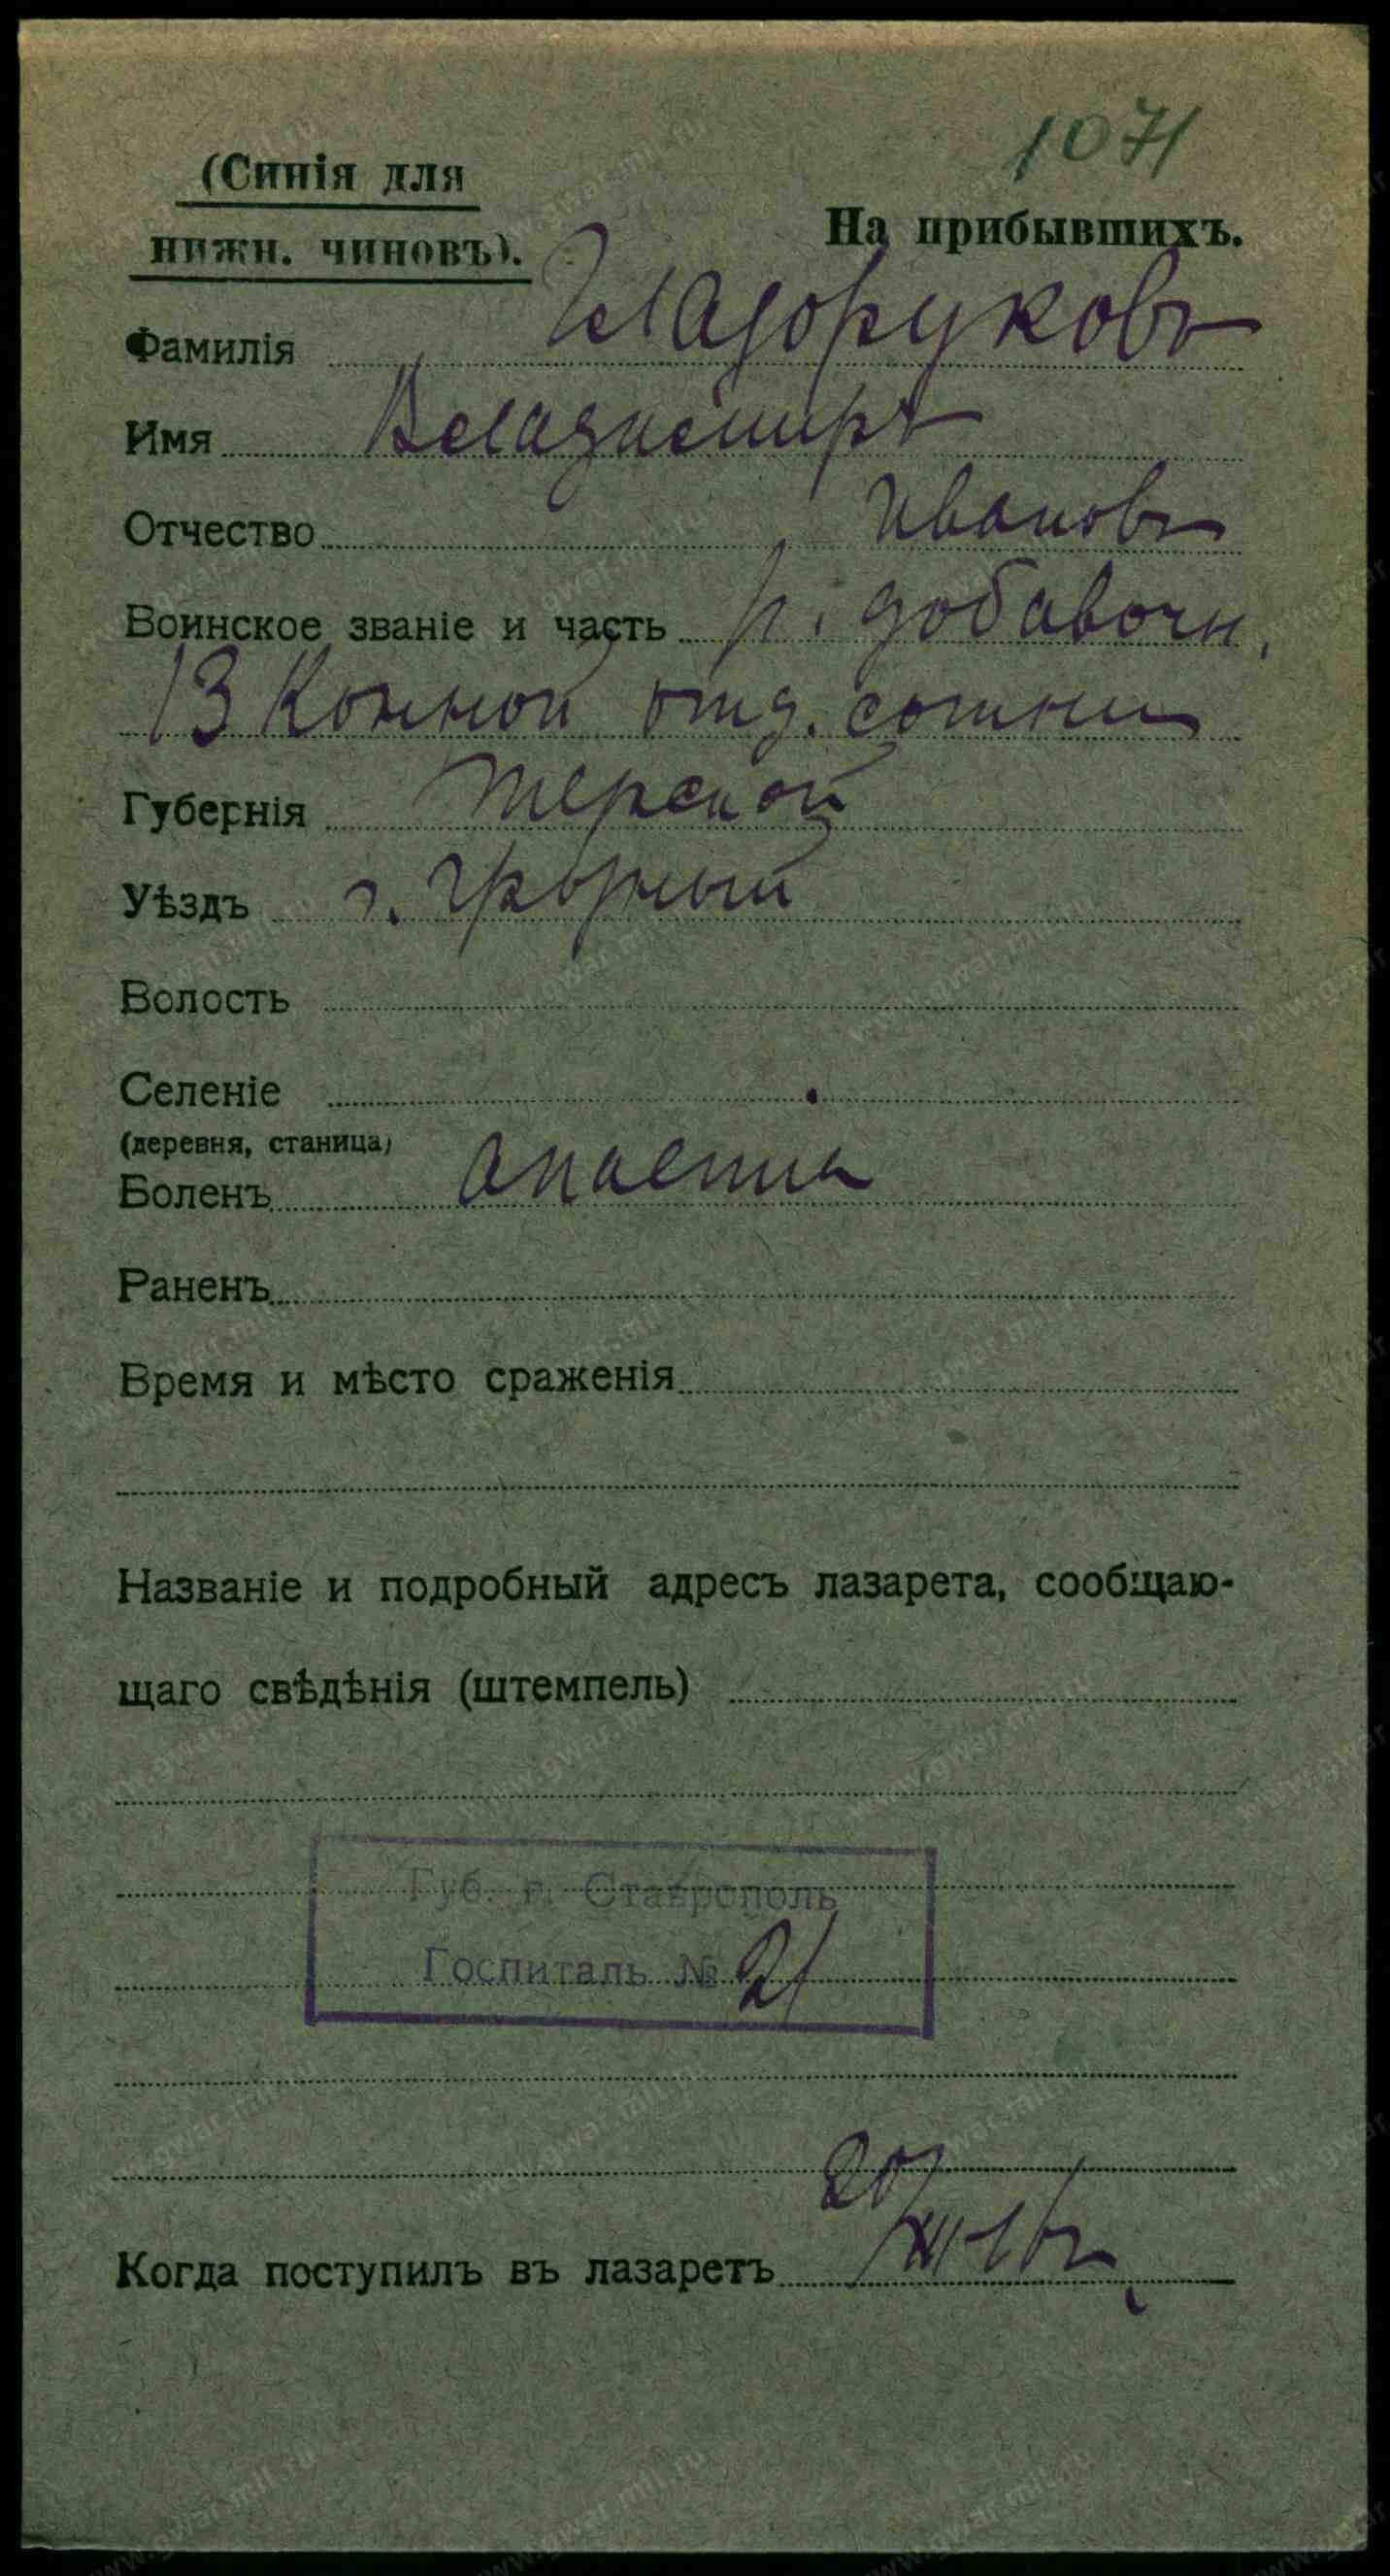 1071
(Синія для
нижн. чиновъ).
На прибывшихъ.
Фамилія
Имя Владиміръ
Отчество Ивановъ
Воинское званіе и часть р. добавочн.
13 Конной отд. сотни
Губернія Терской
Уѣздъ г. Грозный
Волость
Селеніе
(деревня, станица)
Боленъ
Раненъ
Время и мѣсто сраженія
Названіе и подробный адресъ лазарета, сообщаю-
щаго свѣдѣнія (штемпель)
Губ. г. Ставрополь
Госпиталь № 21
Когда поступилъ въ лазаретъ 20/XII-16 г.